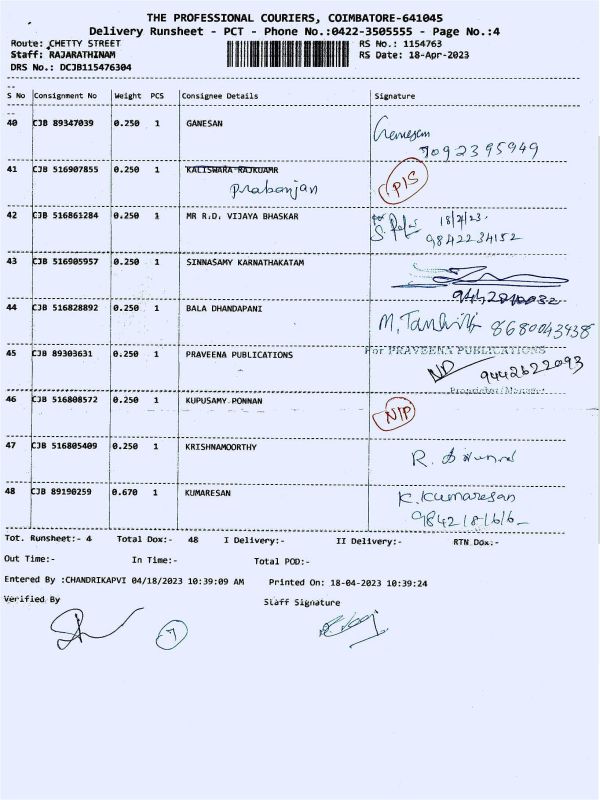 THE PROFESSIONAL COURIERS, COIMBATORE-641045
Delivery Runsheet - PCT - Phone No.:0422-3505555 - Page No.:4
Route: CHETTY STREET RS No.: 1154763
Staff: RAJARATHINAM RS Date: 18-Apr-2023
DRS No.: DCJB115476304
S No Consignment No Weight PCS Consignee Details Signature
40 CJB 89347039 0.250 1 GANESAN Ganesan
7092395949
41 CJB 516907855 0.250 1 KALISWARA RAJKUAMR
Prabanjan PIS
42 CJB 516861284 0.250 1 MR R.D. VIJAYA BHASKAR for 18/4/23.
9842234152
43 CJB 516905957 0.250 1 SINNASAMY KARNATHAKATAM
9442840032
44 CJB 516828892 0.250 1 BALA DHANDAPANI
M. 8680043438
45 CJB 89303631 0.250 1 PRAVEENA PUBLICATIONS For PRAVEENA PUBLICATIONS
9442622093
Proprietor/Manager
46 CJB 516808572 0.250 1 KUPUSAMY PONNAN NIP
47 CJB 516805409 0.250 1 KRISHNAMOORTHY
R.
48 CJB 89190259 0.670 1 KUMARESAN K. Kumaresan
9842181616
Tot. Runsheet:- 4 Total Dox:- 48 I Delivery:- II Delivery:- RTN Dox:-
Out Time:- In Time:- Total POD:-
Entered By :CHANDRIKAPVI 04/18/2023 10:39:09 AM Printed On: 18-04-2023 10:39:24
Verified By Staff Signature
7